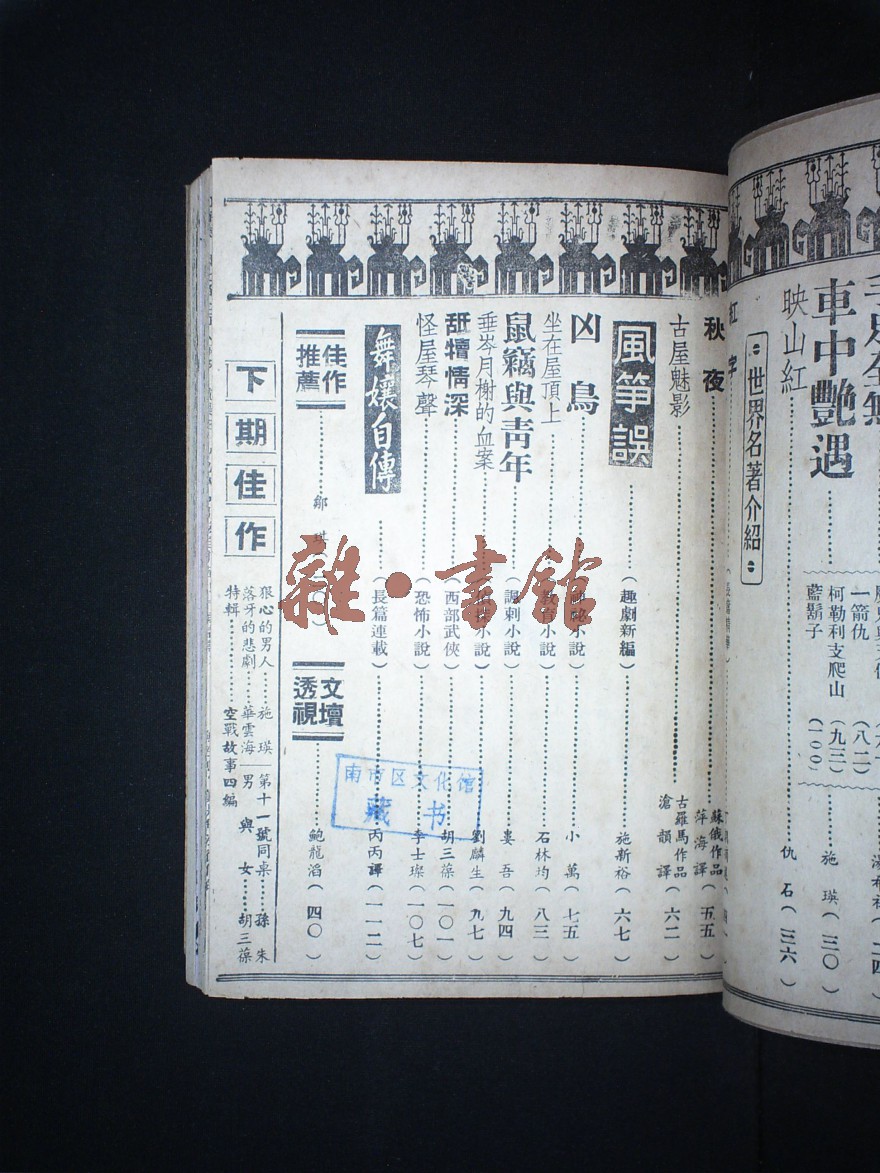 車中艷遇
映山紅
仇石(三六)
施瑛(三〇)
世界名著介紹
一箭仇
(八二)
柯勒利支爬山
(九三)
藍鬍子
(一〇〇)
紅字
秋夜
蘇俄作品
萍海譯(五五)
古屋魅影
古羅馬作品
滄韻譯(六二)
風箏誤
(趣劇新編)
施新裕(六七)
凶鳥
小萬(七五)
坐在屋頂上
(教育小說)
石林均(八三)
鼠竊與青年
(諷刺小說)
婁吾(九四)
垂岑月榭的血案
劉麟生(九七)
舐犢情深
(西部武俠)
胡三葆(一〇一)
怪屋琴聲
(恐怖小說)
李士璨(一〇七)
舞孃自傳
(長篇連載)
丙丙譯(一一二)
佳作推薦
鄒琪
文壇透視
鮑龍滔(四〇)
下期佳作
狠心的男人 施瑛
第十一號同桌 孫朱
落牙的悲劇 華雲海
男與女 胡三葆
特輯 空戰故事四編
南市区文化馆
藏书
雜·書館